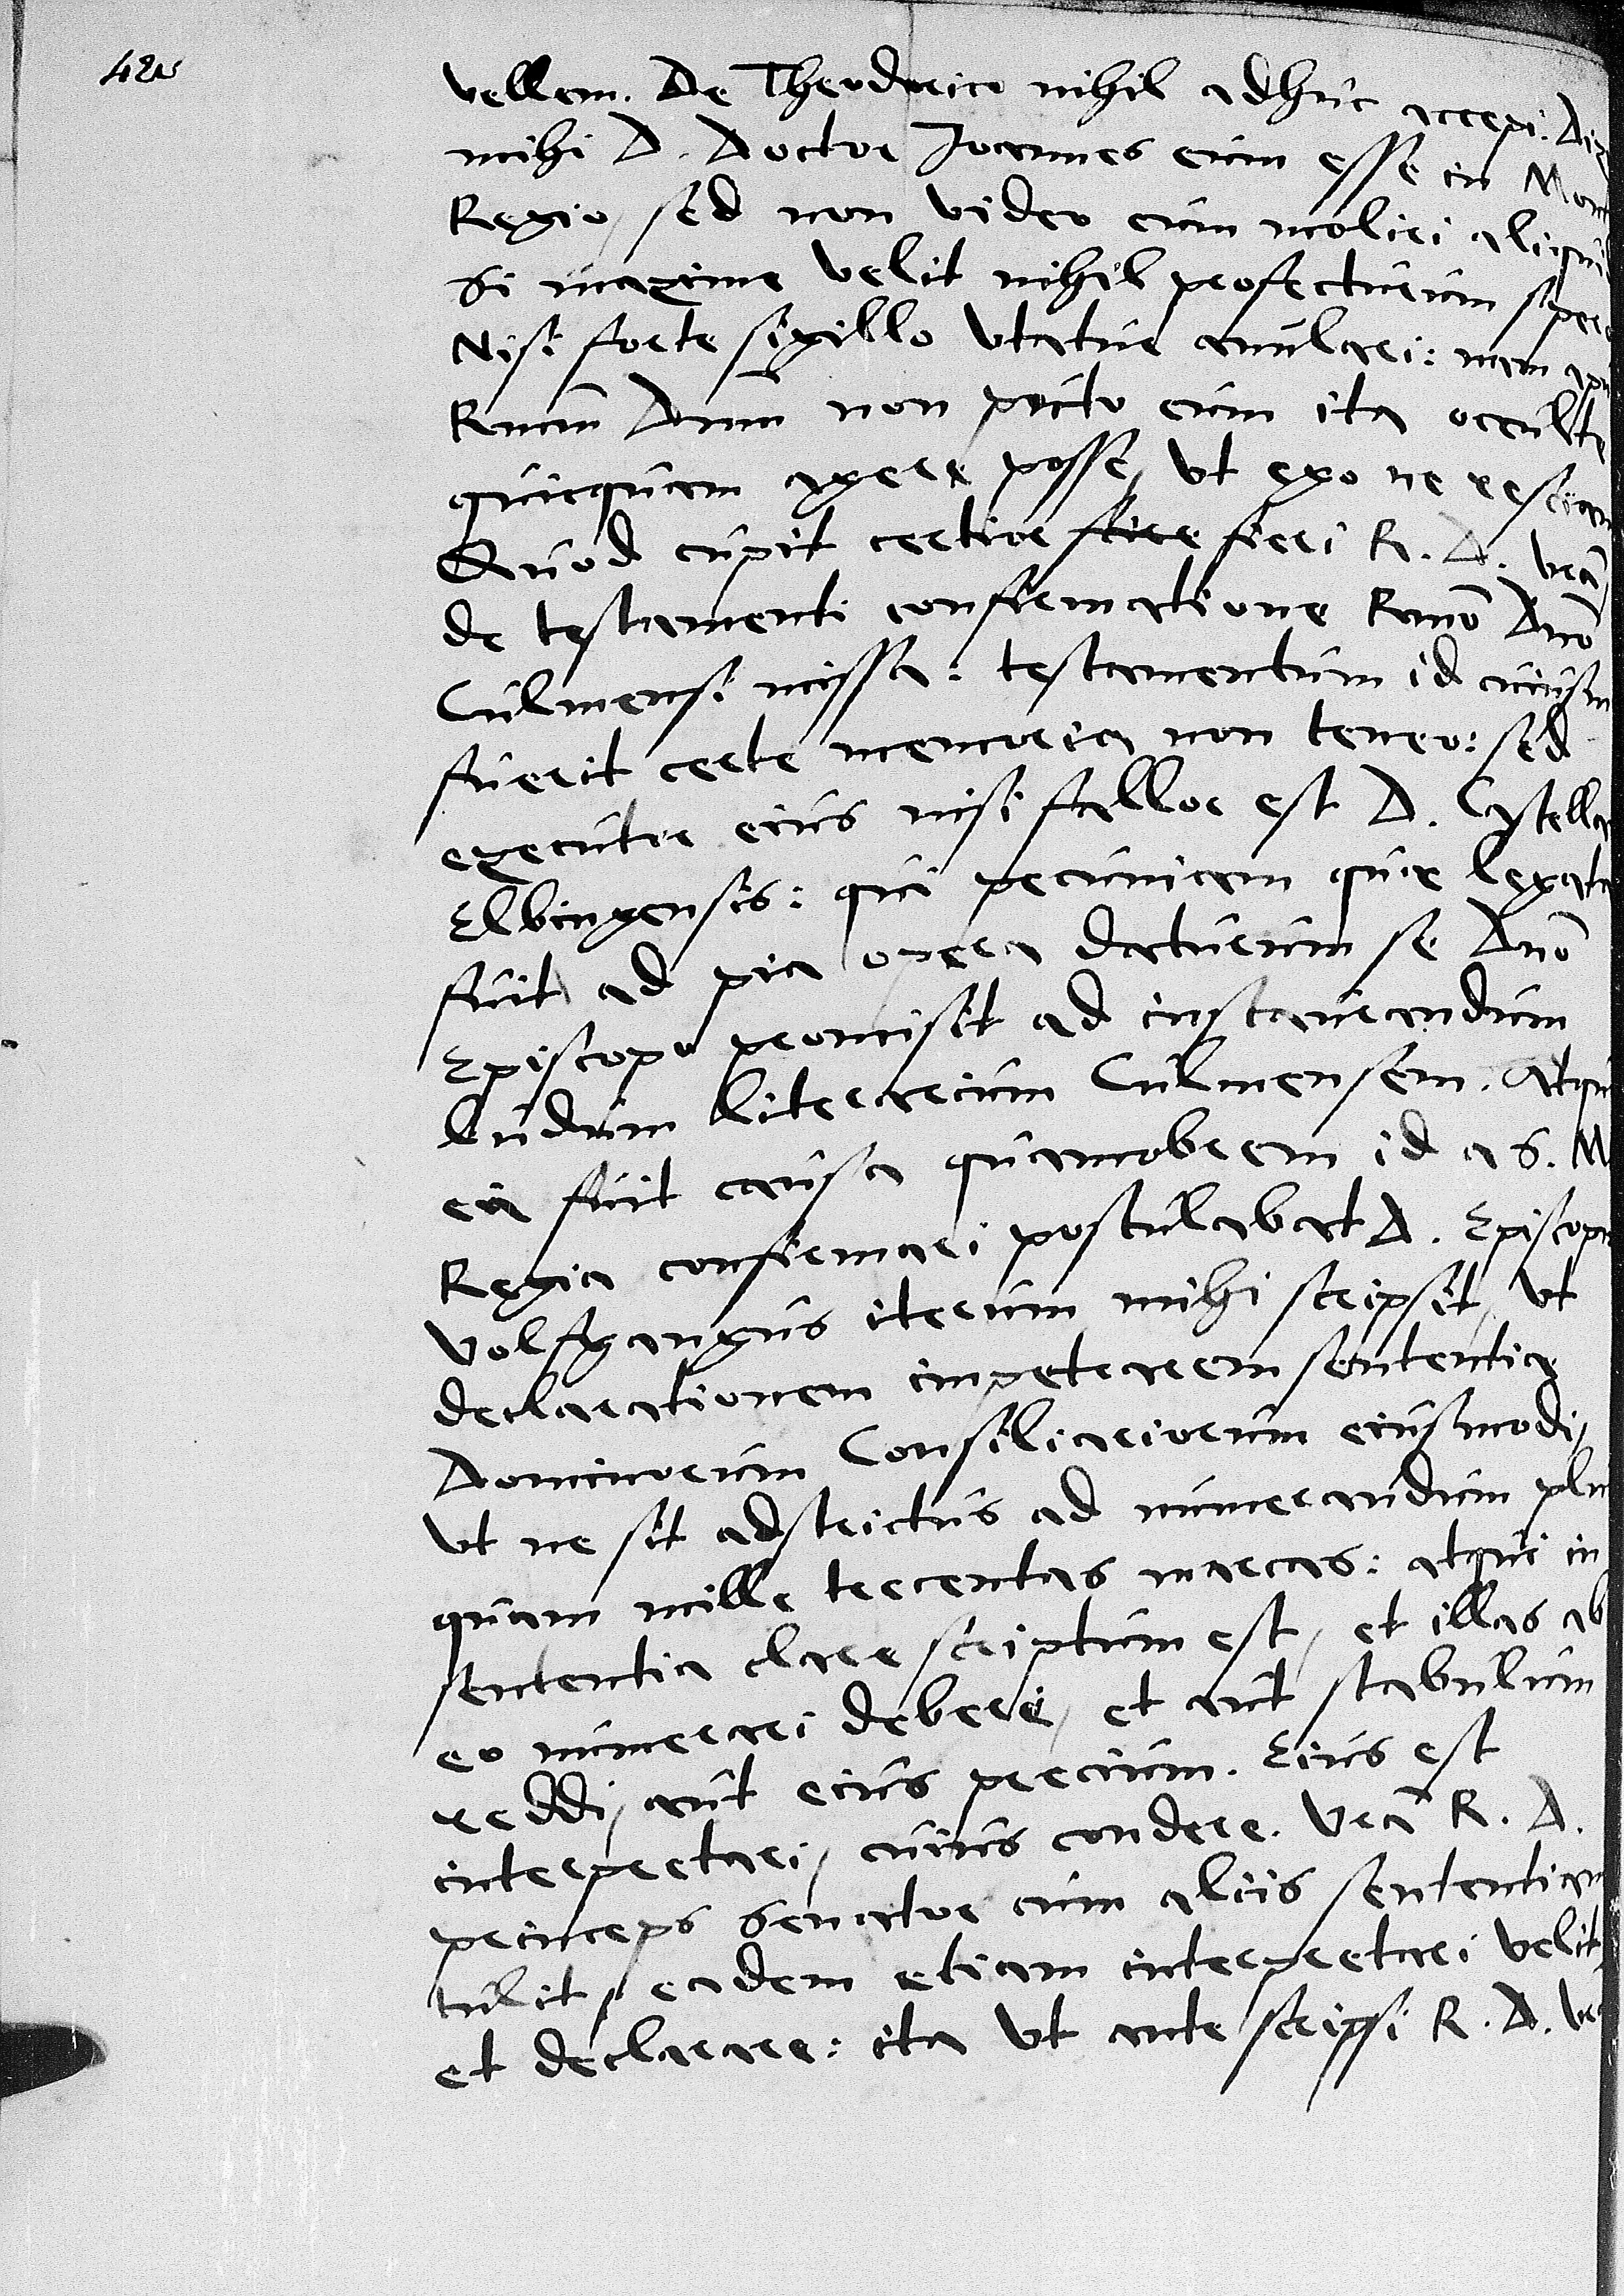 42v
vellem. De Theodorico nihil adhuc accepi.
mihi D. Doctor Ioannes eum esse in
Regio, sed non video eum moliri
Si maxime velit nihil profecturum
Nisi forte sigillo utatur anulari: nam
Rmum Dnum non puto eum ita occulte
quicquam agere posse, ut ego ne resciam
Quod cupit certior fieri R. D. vra
de testamenti confirmatione Rmo Dno
Culmensi missa: testamentum id
fuerit certe memoria non teneo: sed
executor eius nisi fallor est D.
Elbingensis: qui pecuniam quae legata
fuit ad pia opera daturum se Dno
Episcopo promisit ad instaurandum
ludum literarium Culmensem. atque
ea fuit causa quamobrem id a S. M
Regia confirmari postulabat D.
Volfgangus iterum mihi scripsit, ut
declarationem impetrarem sententiae
Dominorum Consiliariorum eiusmodi,
ut ne sit adstrictus ad numerandum
quam mille trecentas marcas: atqui in
sententia clare scriptum est, et illas ab
eo numerari debere, et aut stabulum
reddi, aut eius precium. Eius est
interpretari, cuius condere. Vra R. D.
princeps Senator cum aliis sententiam
tulit, eadem etiam interpretari velit
et declarare: ita ut ante scripsi R. D.